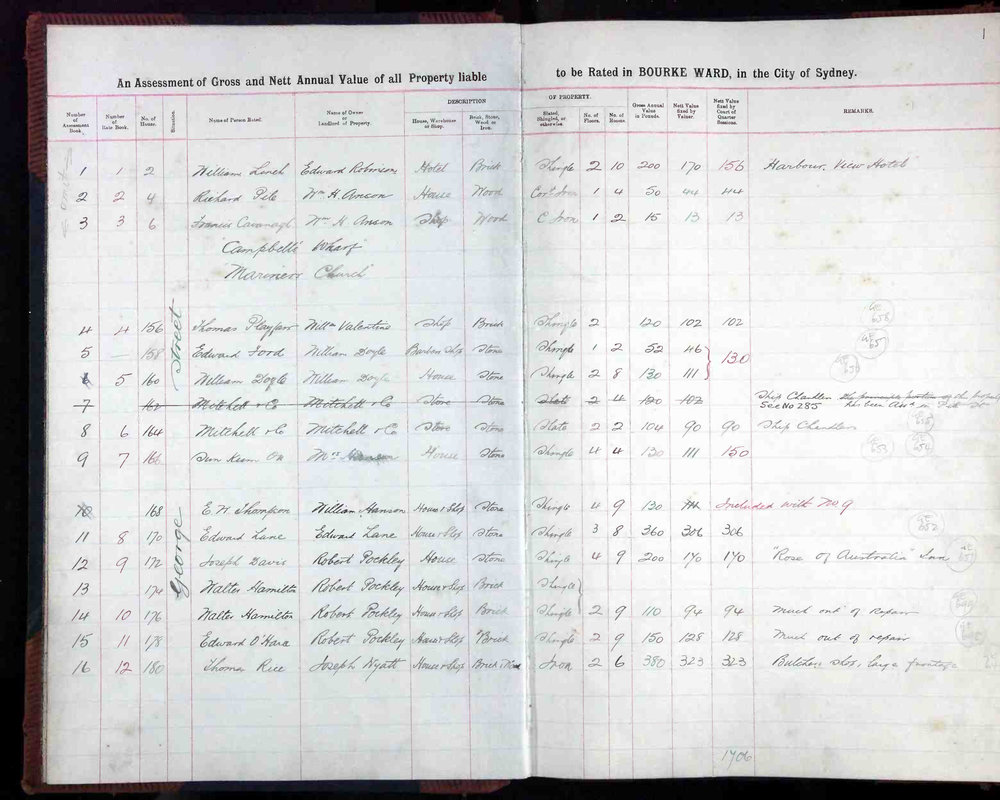 1
An Assessment of Gross and Nett Annual Value of all Property liable to be Rated in BOURKE WARD, in the City of Sydney.
DESCRIPTION OF PROPERTY.
Number of Assessment Book. Number of Rate Book. No. of House. Situation. Name of Person Rated. Name of Owner or Landlord of Property. House, Warehouse or Shop. Brick, Stone, Wood or Iron. Slated, Shingled, or otherwise. No. of Floors. No. of Rooms. Gross Annual Value in Pounds. Nett Value fixed by Valuer. Nett Value fixed by Court of Quarter Sessions. REMARKS.
1 1 2 William Edward Robinson Hotel Brick Shingle 2 10 200 170 156 Harbour View Hotel
2 2 4 Richard Pile Wm H. Anson House Wood Cord Iron 1 4 50 44 44
3 3 6 Francis Cavanagh Wm H Anson Shop Wood C Iron 1 2 15 13 13
"Campbells Wharf"
"Mariners Church"
George Street
4 4 156 Thomas Playfair Willm Valentine Shop Brick Shingle 2 120 102 102
5 — 158 Edward Ford William Doyle Barbers Shop Stone Shingle 1 2 52 46 130
6 5 160 William Doyle William Doyle House Stone Shingle 2 8 130 111
7 162 Mitchell & Co Mitchell & Co Store Stone Slate 2 4 120 102 Ship Chandler
See No 285
8 6 164 Mitchell & Co Mitchell & Co Store Stone Slate 2 2 104 90 90 Ship Chandlers
9 7 166 Sun Kum On Mrs Hanson House Stone Shingle 4 4 130 111 150
10 168 E. W. Thompson William Hanson House & Shop Stone Shingle 4 9 130 111 Included with No 9
11 8 170 Edward Lane Edward Lane House & Shop Stone Shingle 3 8 360 306 306
12 9 172 Joseph Davis Robert Pockley House Stone Shingle 4 9 200 170 170 "Rose of Australia" Inn
13 174 Walter Hamilton Robert Pockley House & Shop Brick Shingle
14 10 176 Walter Hamilton Robert Pockley House & Shop Brick Shingle 2 9 110 94 94 Much out of repair
15 11 178 Edward O'Hara Robert Pockley House & Shop Brick Shingle 2 9 150 128 128 Much out of repair
16 12 180 Thomas Rice Joseph Wyatt House & Shop Brick & Wood Iron 2 6 380 323 323 Butchers shop, large frontage
1706